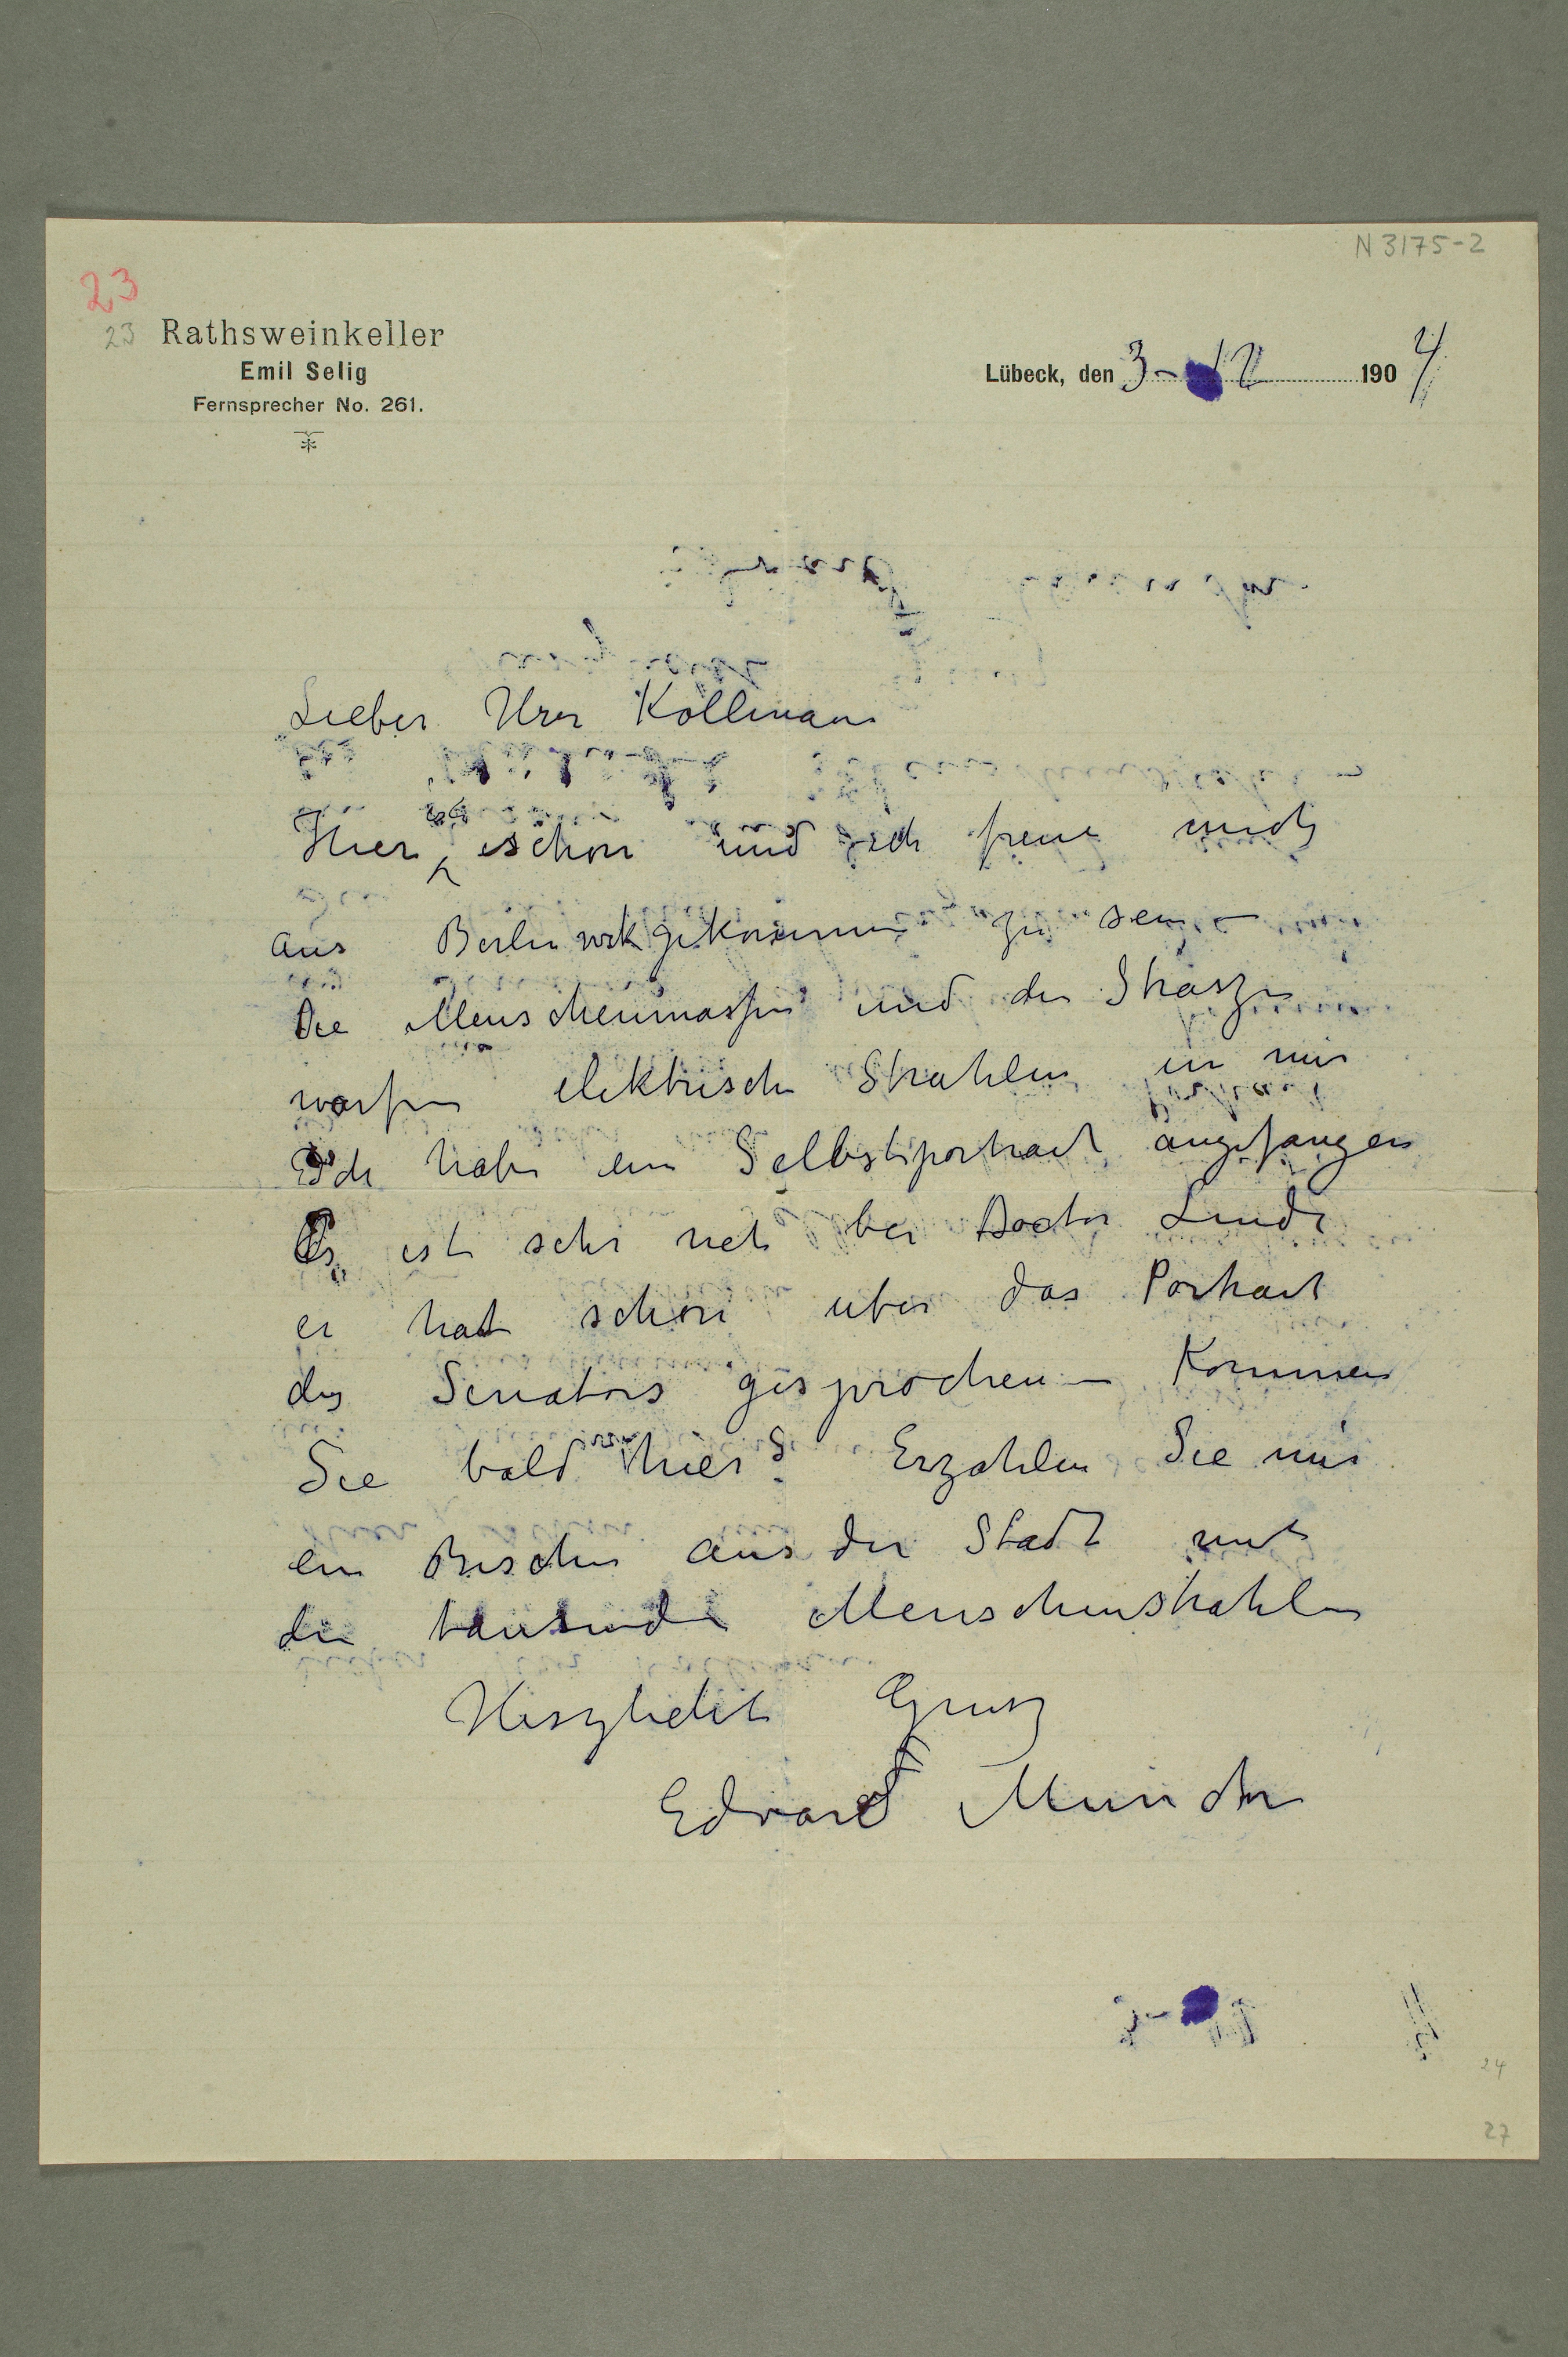 N 3175-2
23
23 Rathsweinkeller
Emil Selig
Fernsprecher No. 261.
Lübeck, den 3-12 1904
Lieber Herr Kollmann
Hier ist schön und ich freue mich
aus Berlin gekommen zu sein –
Die Menschenmassen und die Strasze
warfen elektrische Strahlen in mir
Ich habe ein Selbstportrait angefangen
Es ist sehr nett bei Doctor Linde
er hat schon uber das Portrait
des Senators gesprochen – Kommen
Sie bald hier? Erzahlen Sie mir
ein Bischen aus der Stadt mit
die tausende Menschenstrahlen
Herzlichst Grusz
Edvard Munch
24
27